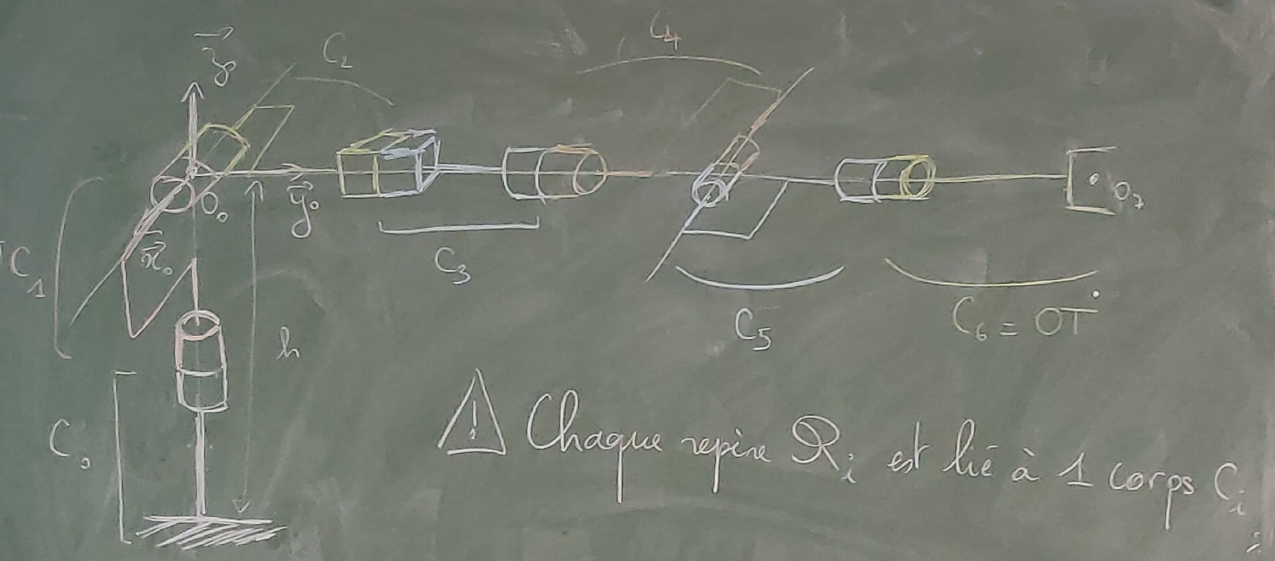 C₄
z₀
C₂
C₁
O₀
y₀
x₀
C₃
O₇
C₅
C₆ = OT
h
C₀
! Chaque repère Rᵢ est lié à 1 corps Cᵢ